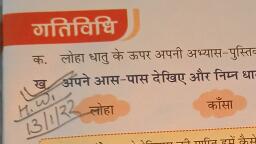 गतिविधि
क. लोहा धातु के ऊपर अपनी अभ्यास-पुस्तिक
ख. अपने आस-पास देखिए और निम्न धा
H.W.
13/1/22
लोहा काँसा